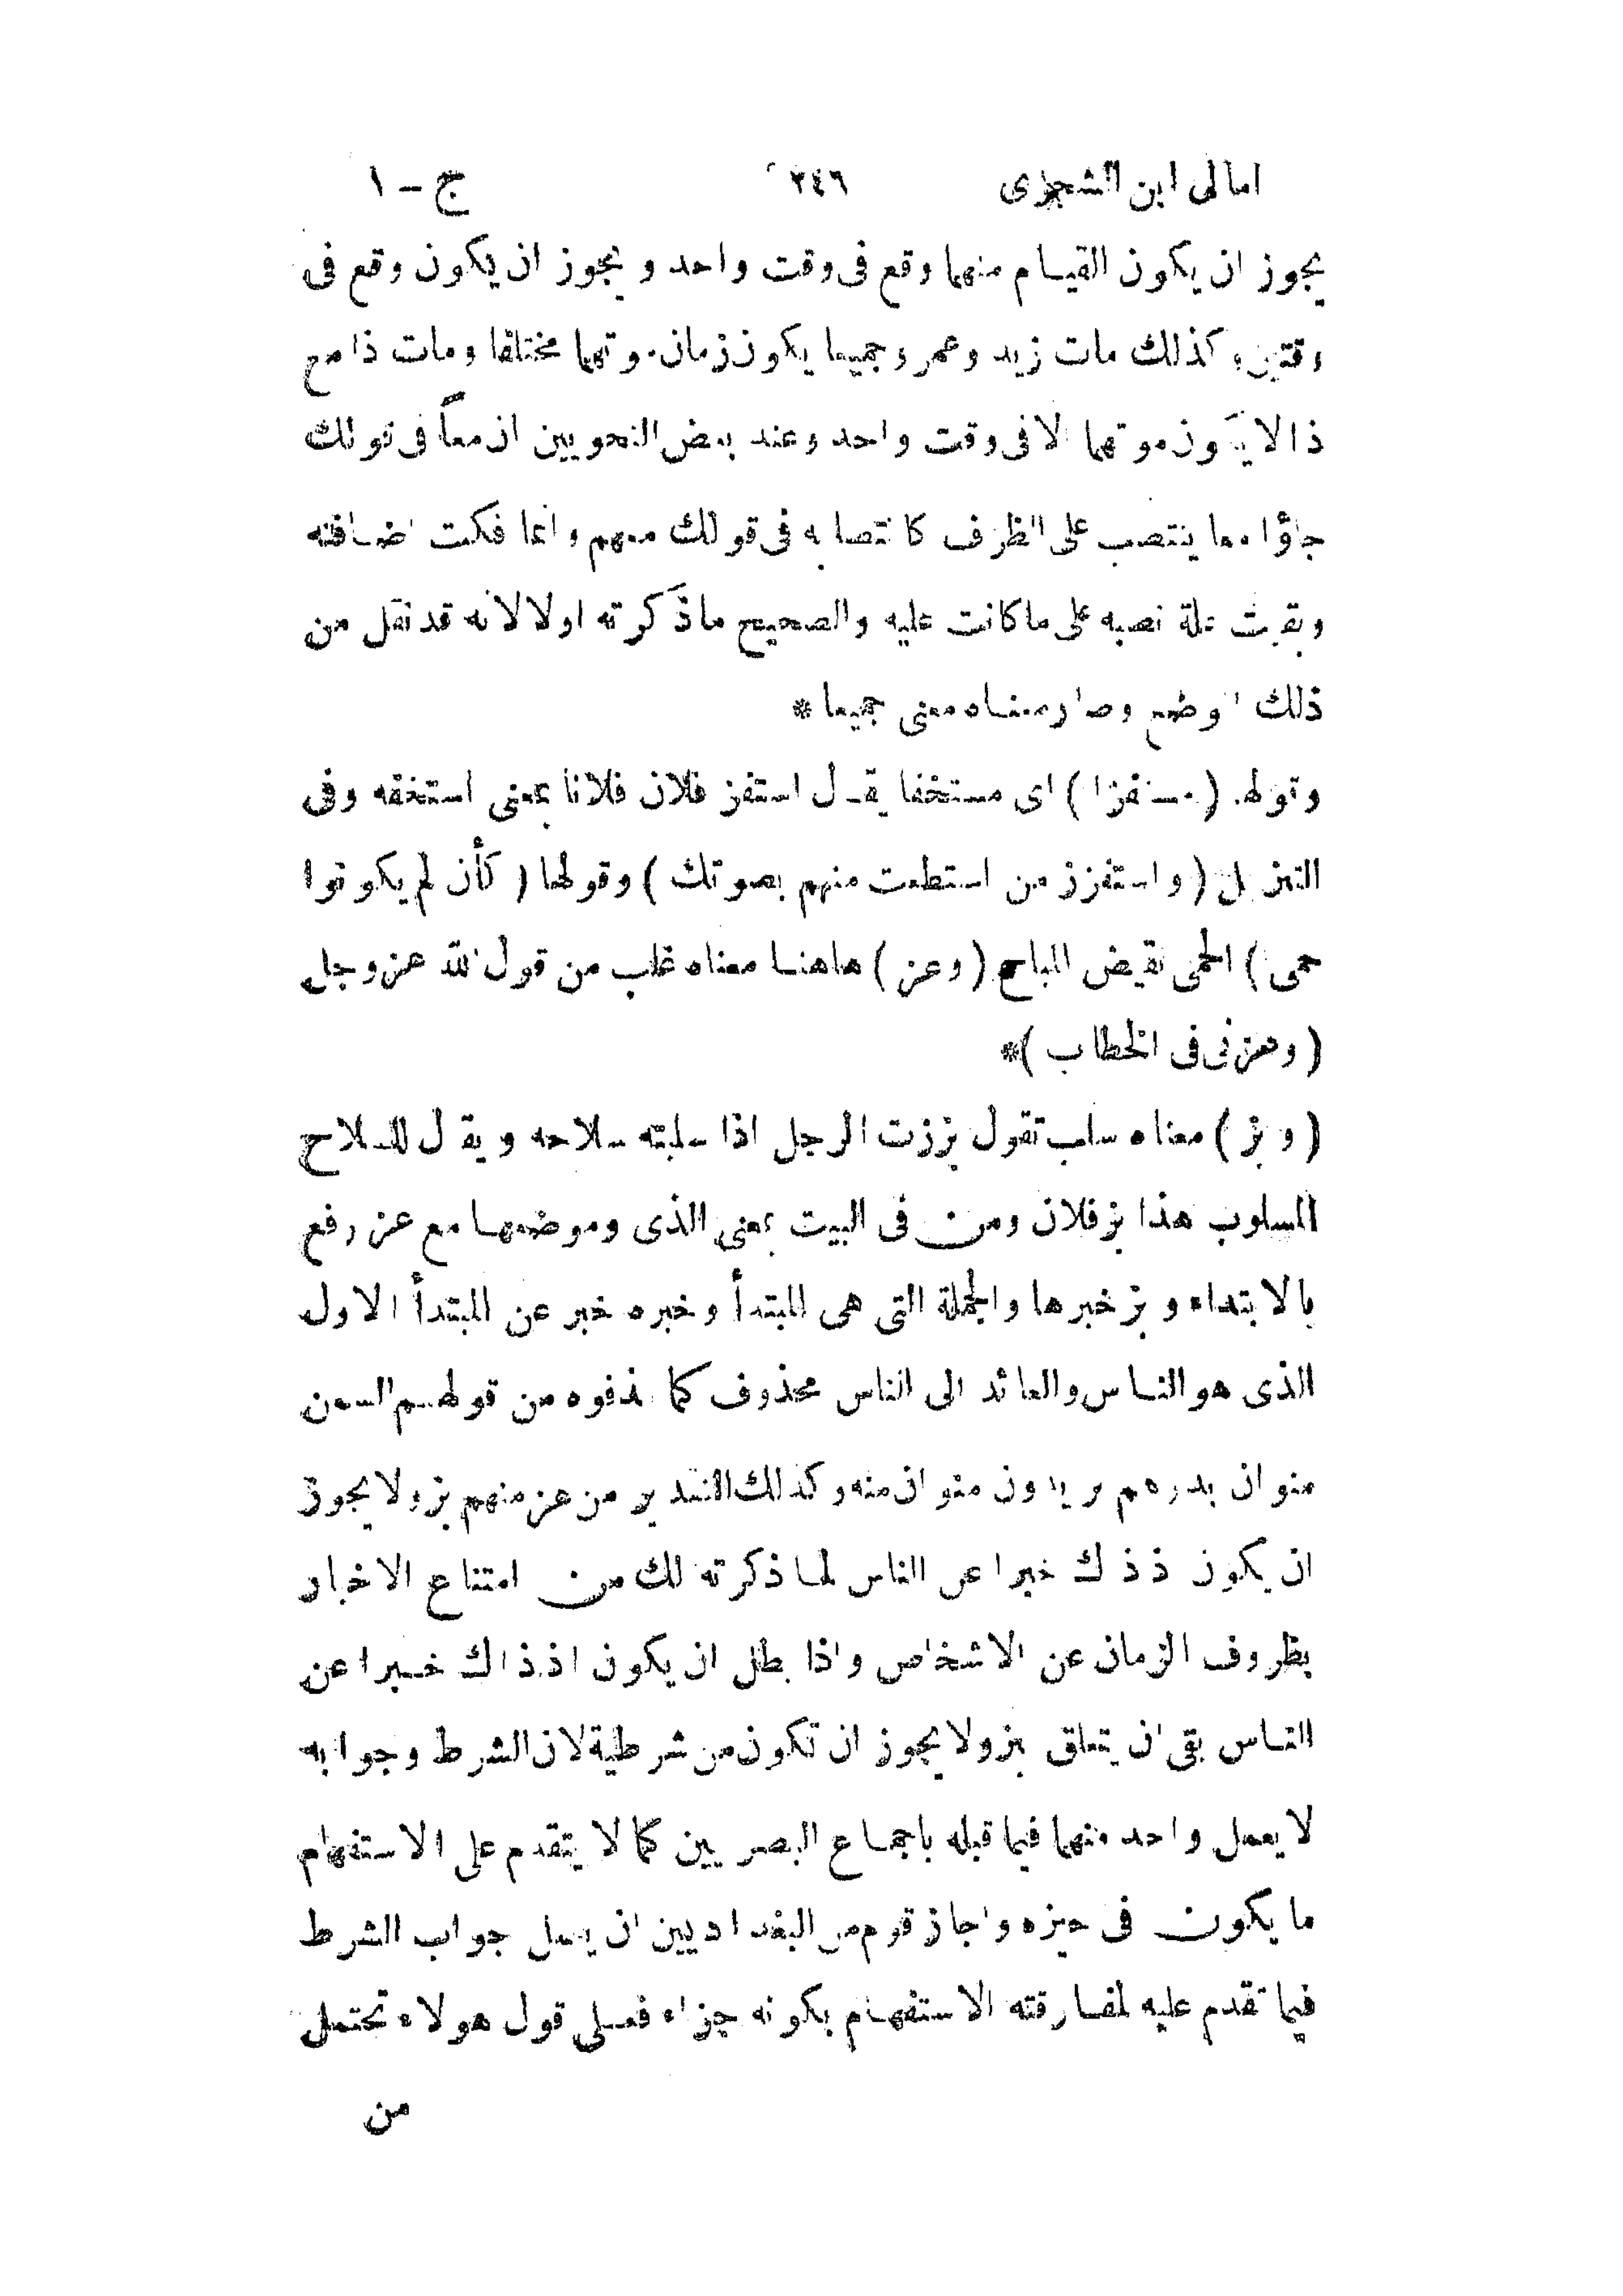 امالى ابن الشجرى ٢٤٦ ج – ١
يجوز ان يكون القيام منهما وقع فى وقت واحد و يجوز ان يكون وقع فى
وقتين وكذلك مات زيد وعمر وجميعا يكون زمان موتهما مختلفا ومات ذا مع
ذا لا يكون موتهما الا فى وقت واحد وعند بعض النحويين ان معاً فى قولك
جاؤا معا ينتصب على الظرف كانتصابه فى قولك معهم وانما فكت اضافته
وبقيت علة نصبه على ما كانت عليه والصحيح ما ذكرته اولا لانه قد نقل من
ذلك الوضع وصار معناه معنى جميعا *
وقولها ( مستفزا ) اى مستخفا يقال استفز فلان فلانا بمعنى استخفه وفى
التنزيل ( واستفزز من استطعت منهم بصوتك ) وقولها ( كأن لم يكونوا
حمى ) الحمى نقيض المباح ( وعز ) هاهنا معناه غلب من قول الله عز وجل
( وعزنى فى الخطاب ) *
( و بز ) معناه سلب تقول بززت الرجل اذا سلبته سلاحه ويقال للسلاح
المسلوب هذا بز فلان ومن فى البيت بمعنى الذى وموضعها مع عز رفع
بالابتداء و بز خبرها والجملة التى هى المبتدأ وخبره خبر عن المبتدأ الاول
الذى هو الناس والعائد الى الناس محذوف كما حذفوه من قولهم السمن
منوان بدرهم يريدون منوان منه وكذلك التقدير من عز منهم بز ولا يجوز
ان يكون اذ ذاك خبرا عن الناس لما ذكرته لك من امتناع الاخبار
بظروف الزمان عن الاشخاص واذا بطل ان يكون اذ ذاك خبرا عن
الناس بقى ان يتعلق ببز ولا يجوز ان تكون من شرطية لان الشرط وجوابه
لا يعمل واحد منهما فيما قبله باجماع البصريين كما لا يتقدم على الاستفهام
ما يكون فى حيزه واجاز قوم من البغداديين ان يعمل جواب الشرط
فيما تقدم عليه لمفارقته الاستفهام بكونه جزاء فعلى قول هولاء تحتمل
من